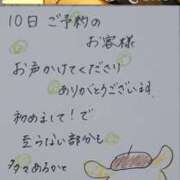 10日 ご予約の
お客様
お声かけてくださり
ありがとうございます
初めまして！で
至らない部分も
多々あるかと